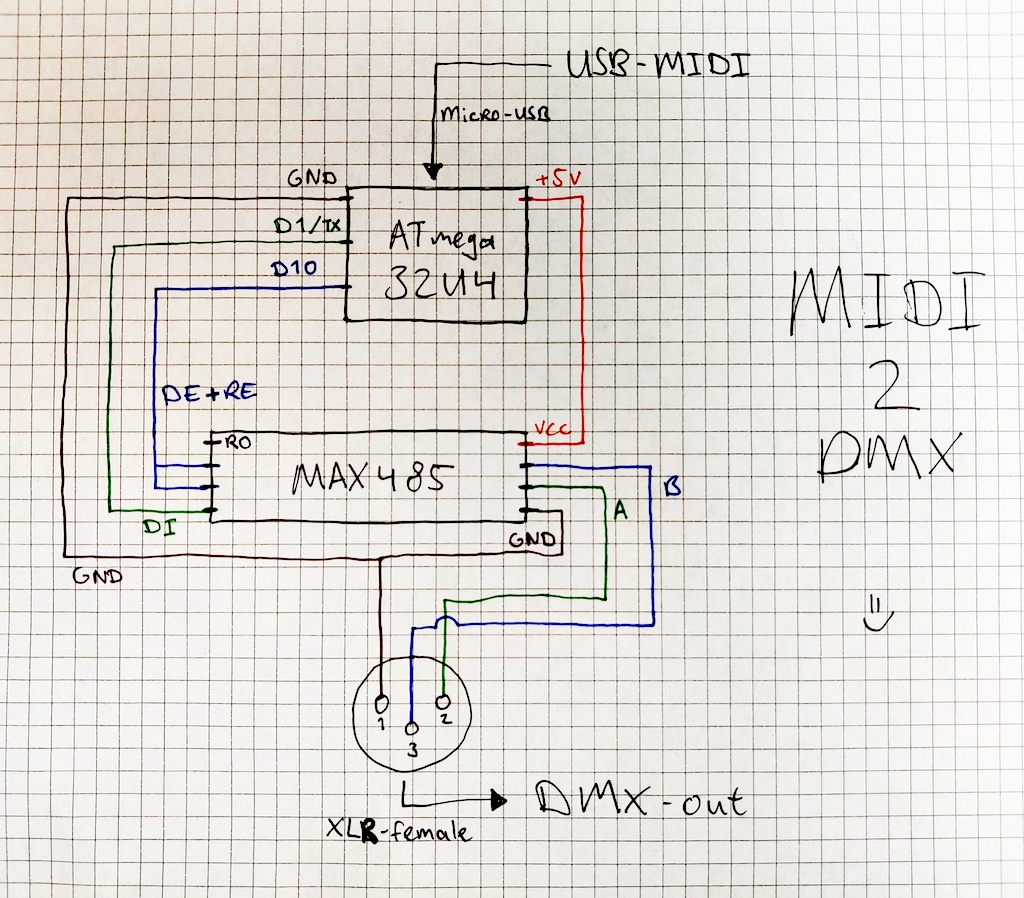 USB-MIDI
Micro-USB
GND
+5V
D1/TX
ATmega
32U4
D10
MIDI
2
DMX
DE+RE
RO
VCC
MAX485
B
A
DI
GND
GND
1
2
3
DMX-out
XLR-female